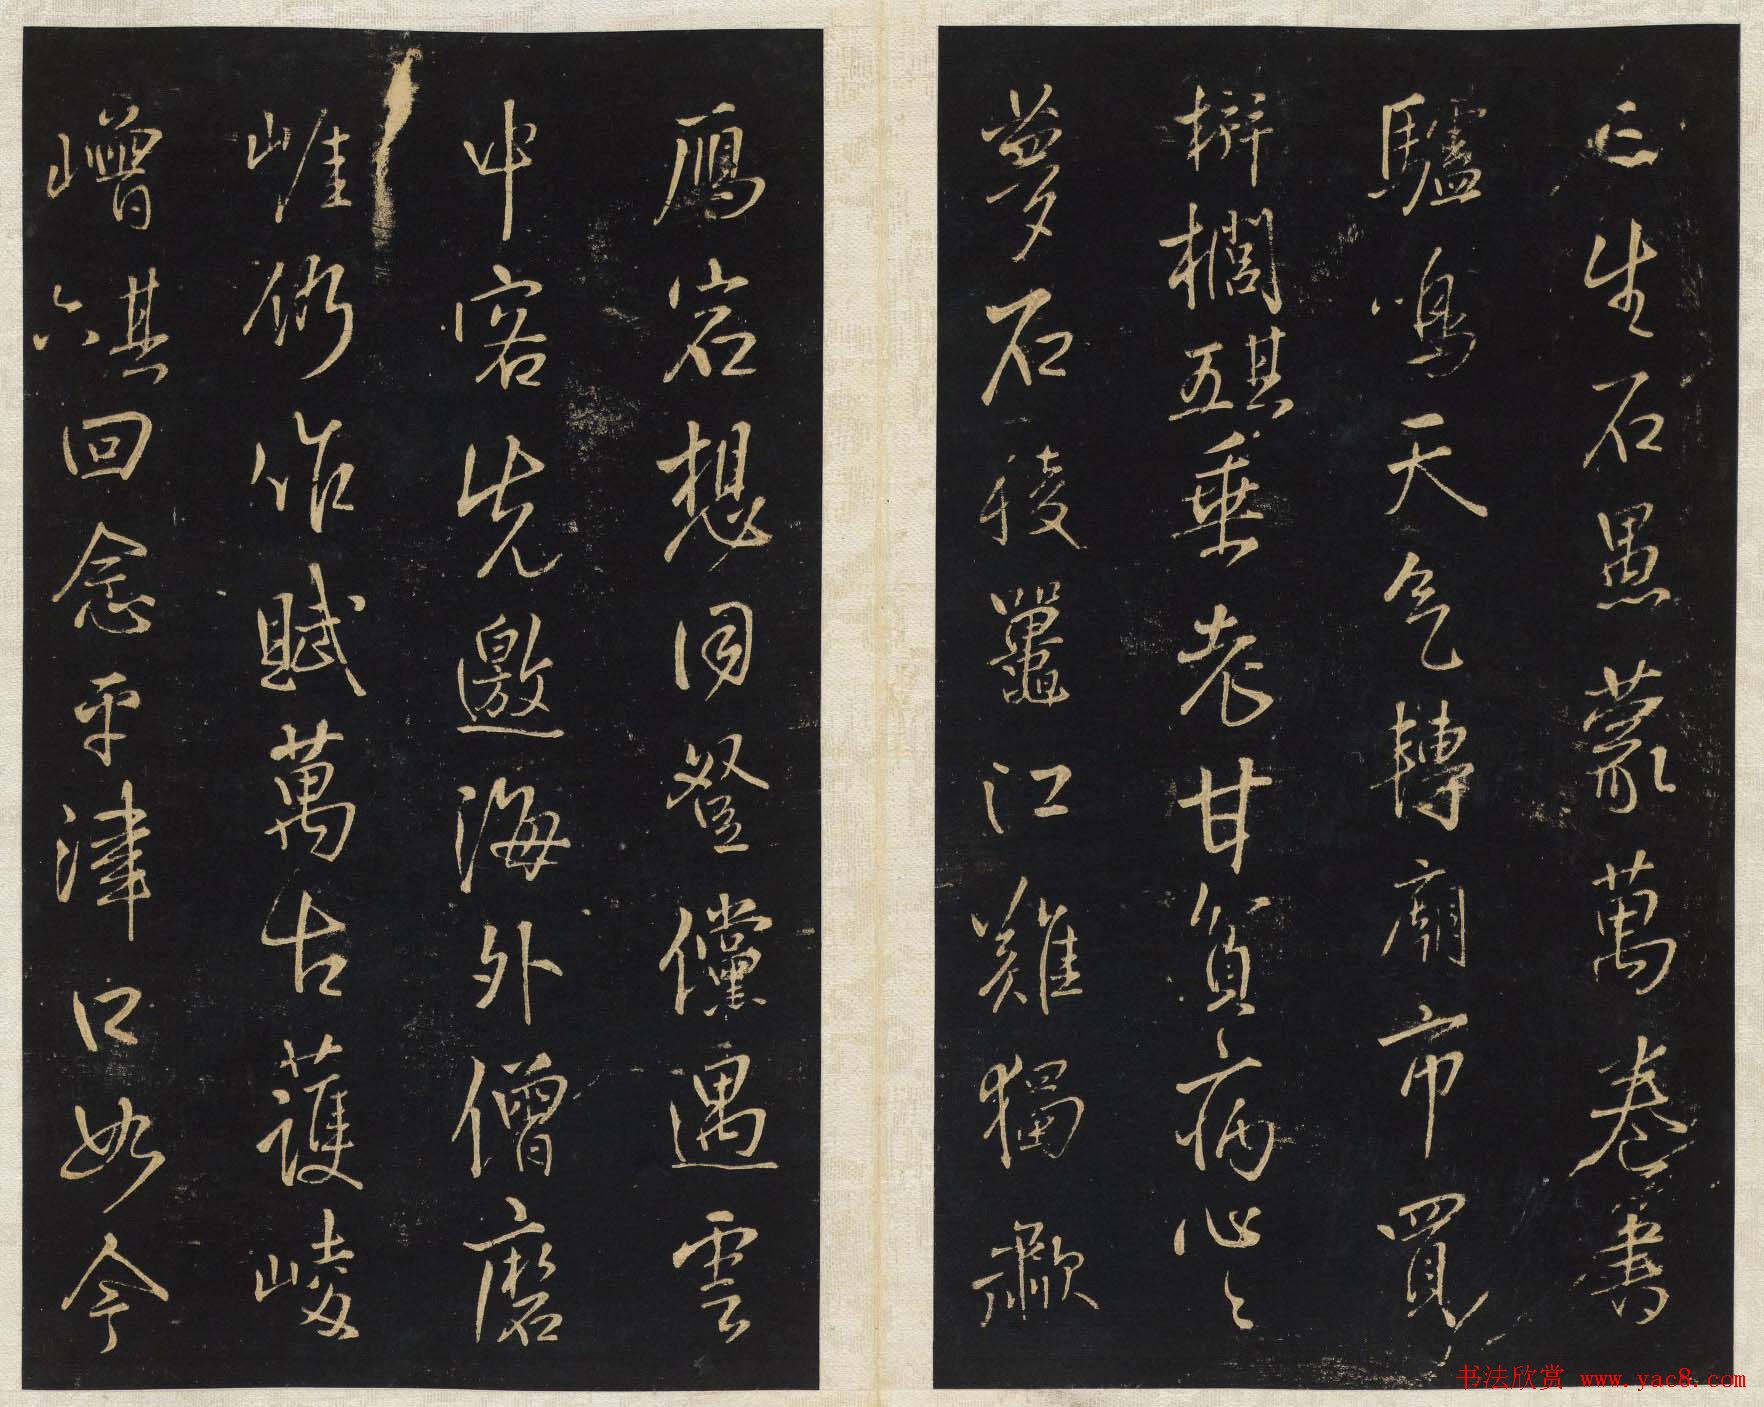 生石愚蒙萬卷書
驢鳴天氣轉廟市買
栟櫚其五垂老甘貧病心〻
夢石稜鼉江難獨
雁宕想同登儻遇雲
中客先邀海外僧磨
崖仍作賦萬古護崚
嶒其六回念平津口如今
书法欣赏 www.yac8.com